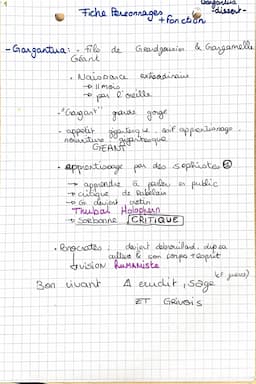 Gargantua
-dissert-
Fiche Personnages
+ fonction
- Gargantua : . fils de Grandgousier & Gargamelle
Géant
. Naissance extraordinaire
→ 11 mois
→ par l'oreille
. "Gargant" grande gorge
. appétit gigantesque, soif apprentissage
nourriture gigantesque
GEANT
. apprentissage par des sophistes
→ apprendre à parler en public
→ critique de Rabelais
→ G. devient crétin
Thubal Holopherne
→ Sorbonne CRITIQUE
. Ponocrates : devient débrouillard
cultive le son corps + esprit
VISION HUMANISTE
(cf guerre)
Bon vivant A erudit, sage
ET Grivois